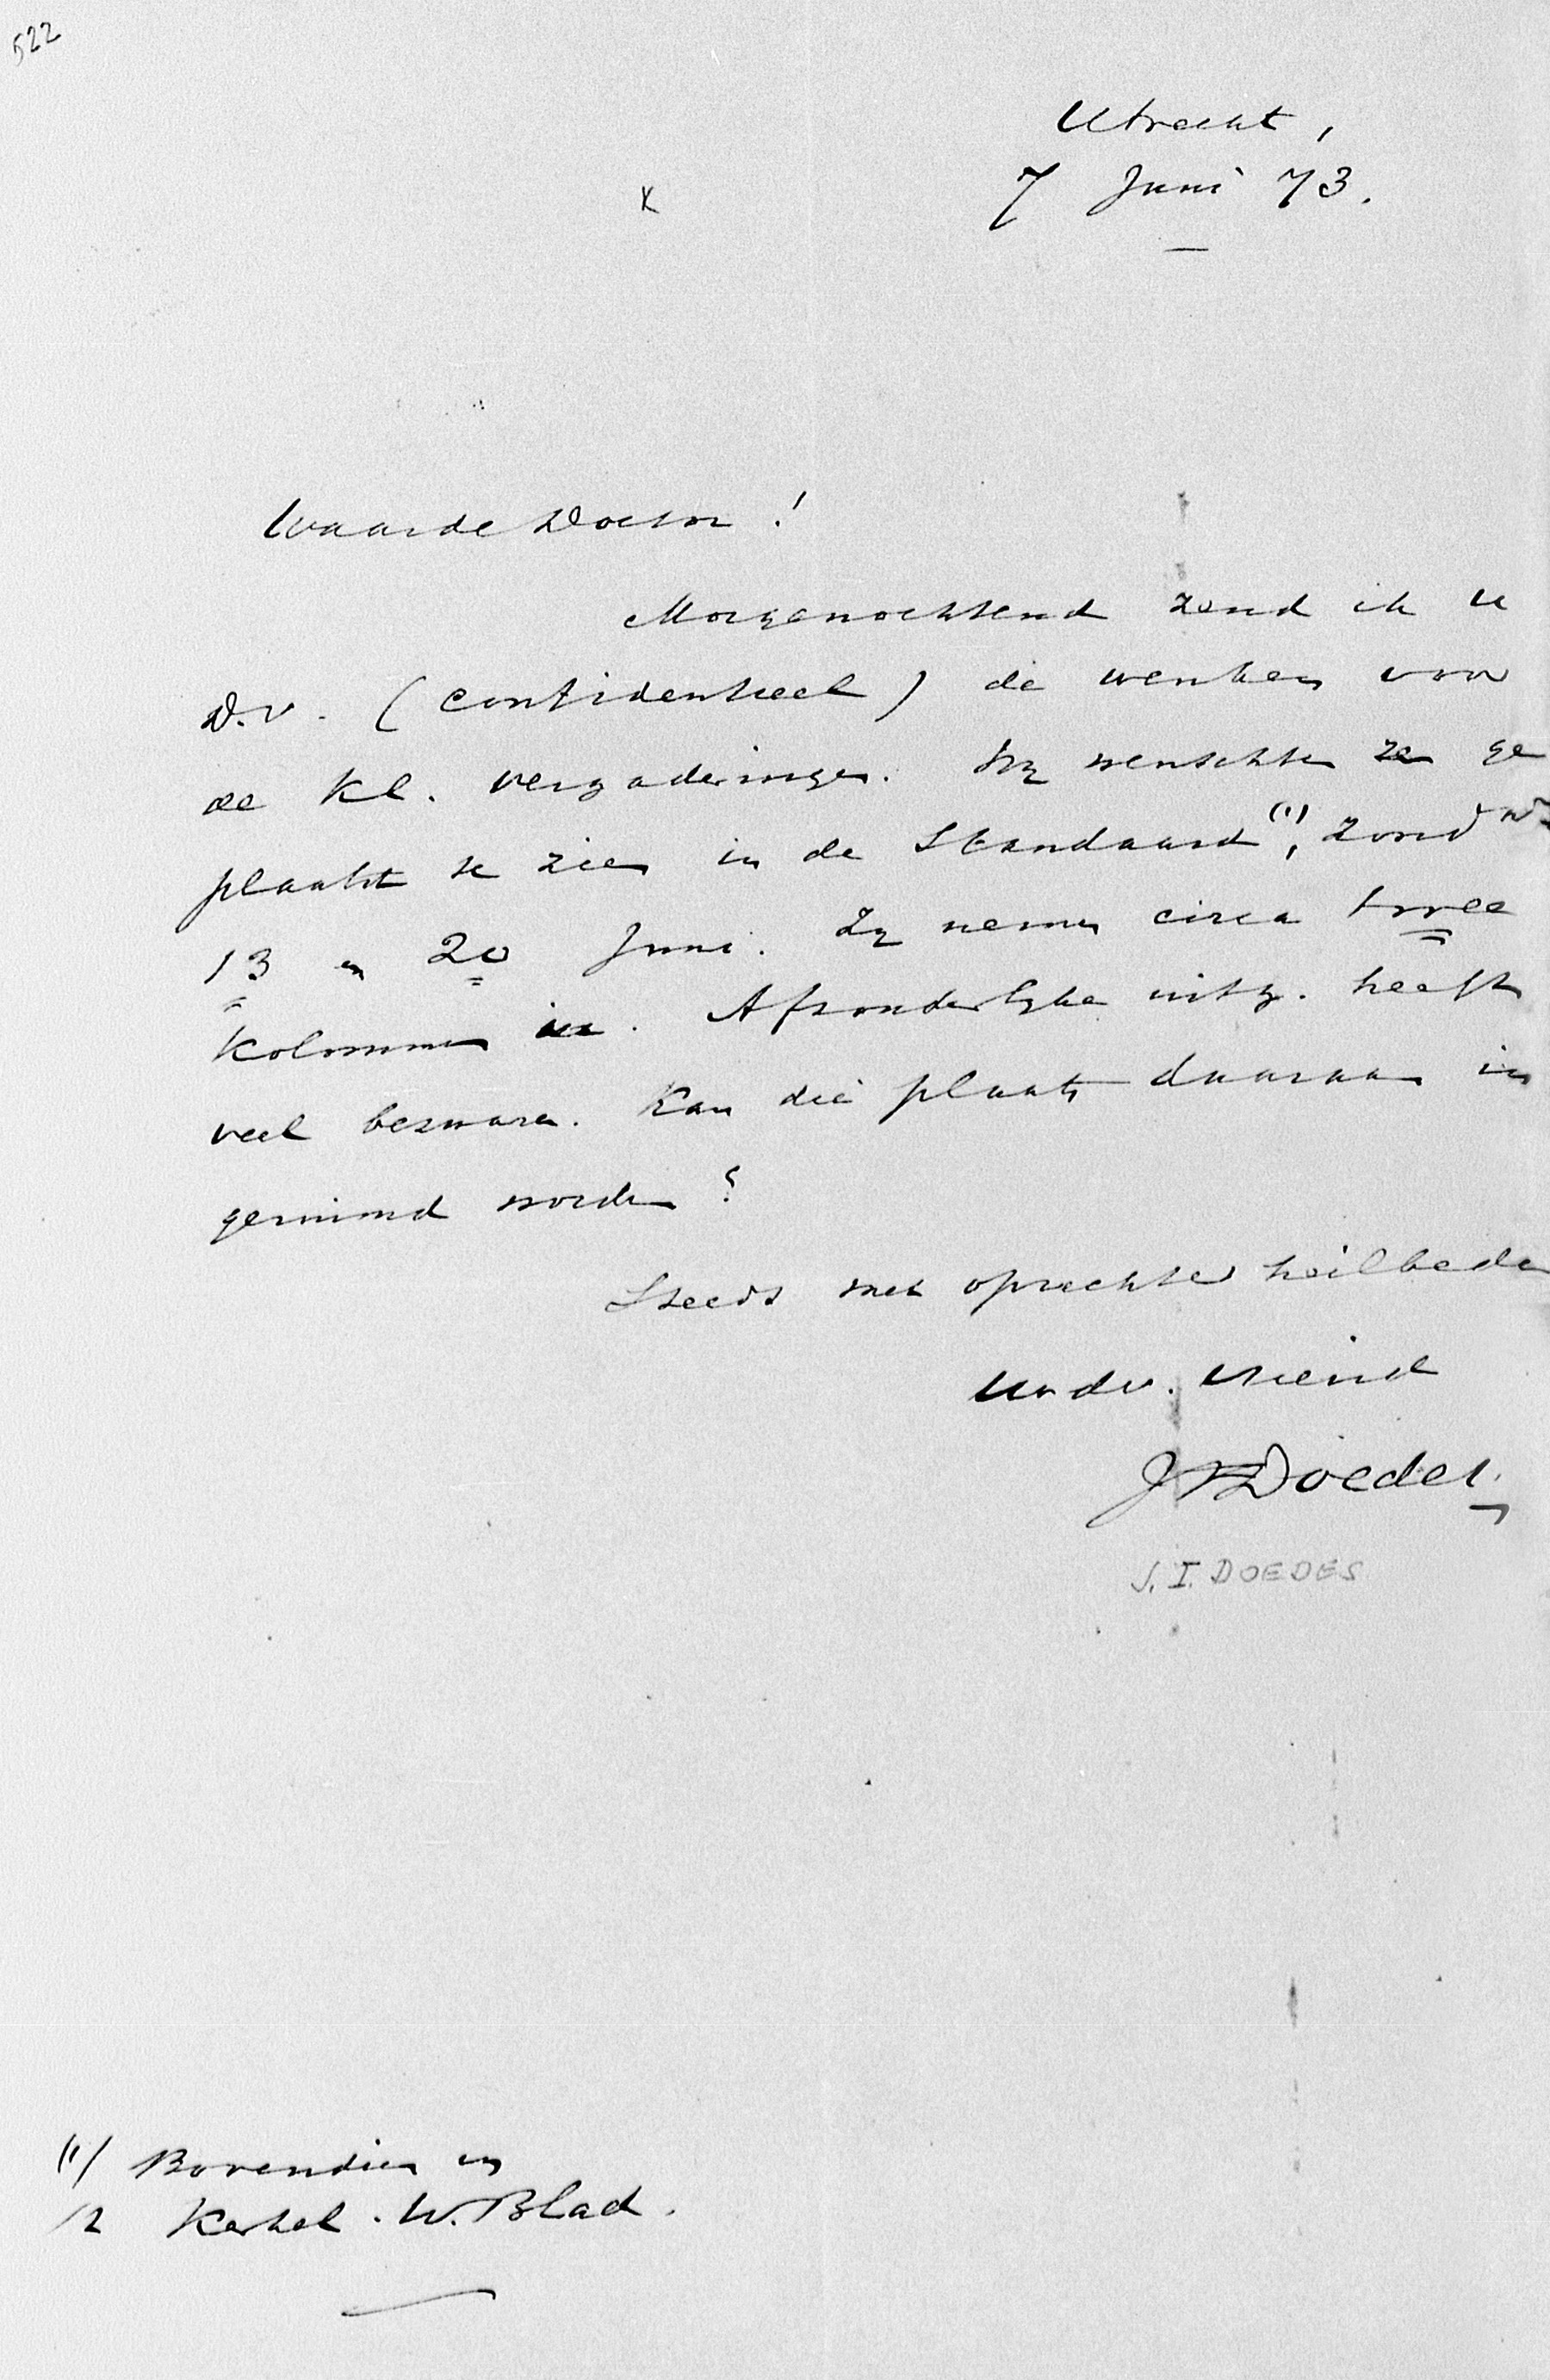 522
Utrecht,
7 Juni 73.
x
Waarde Doctor!
Morgenochtend zend ik u
D.V. (confidentieel) de wenken voor
de Kl. vergaderingen. Wij wenschten ze ge
plaatst te zien in de Standaard (1),
13 en 20 Juni. Zij nemen circa twee
kolommen in. Afzonderlijke uitg. heeft
veel bezwaren. Kan die plaats daaraan in
geruimd worden?
Steeds met oprechte heilbede
Uw dv. vriend
JIDoedes.
J. I. DOEDES
(1) Bovendien in
't Kerkel. W. Blad.